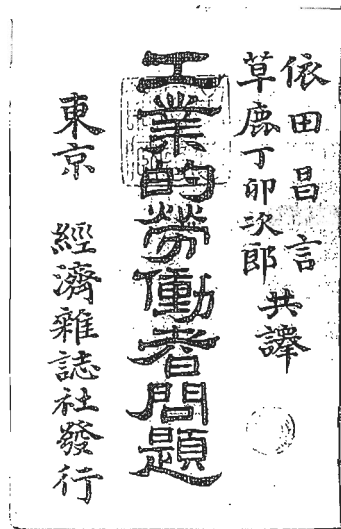 依田昌言
草鹿丁卯次郎 共譯
工業的勞働者問題
東京 經濟雜誌社發行